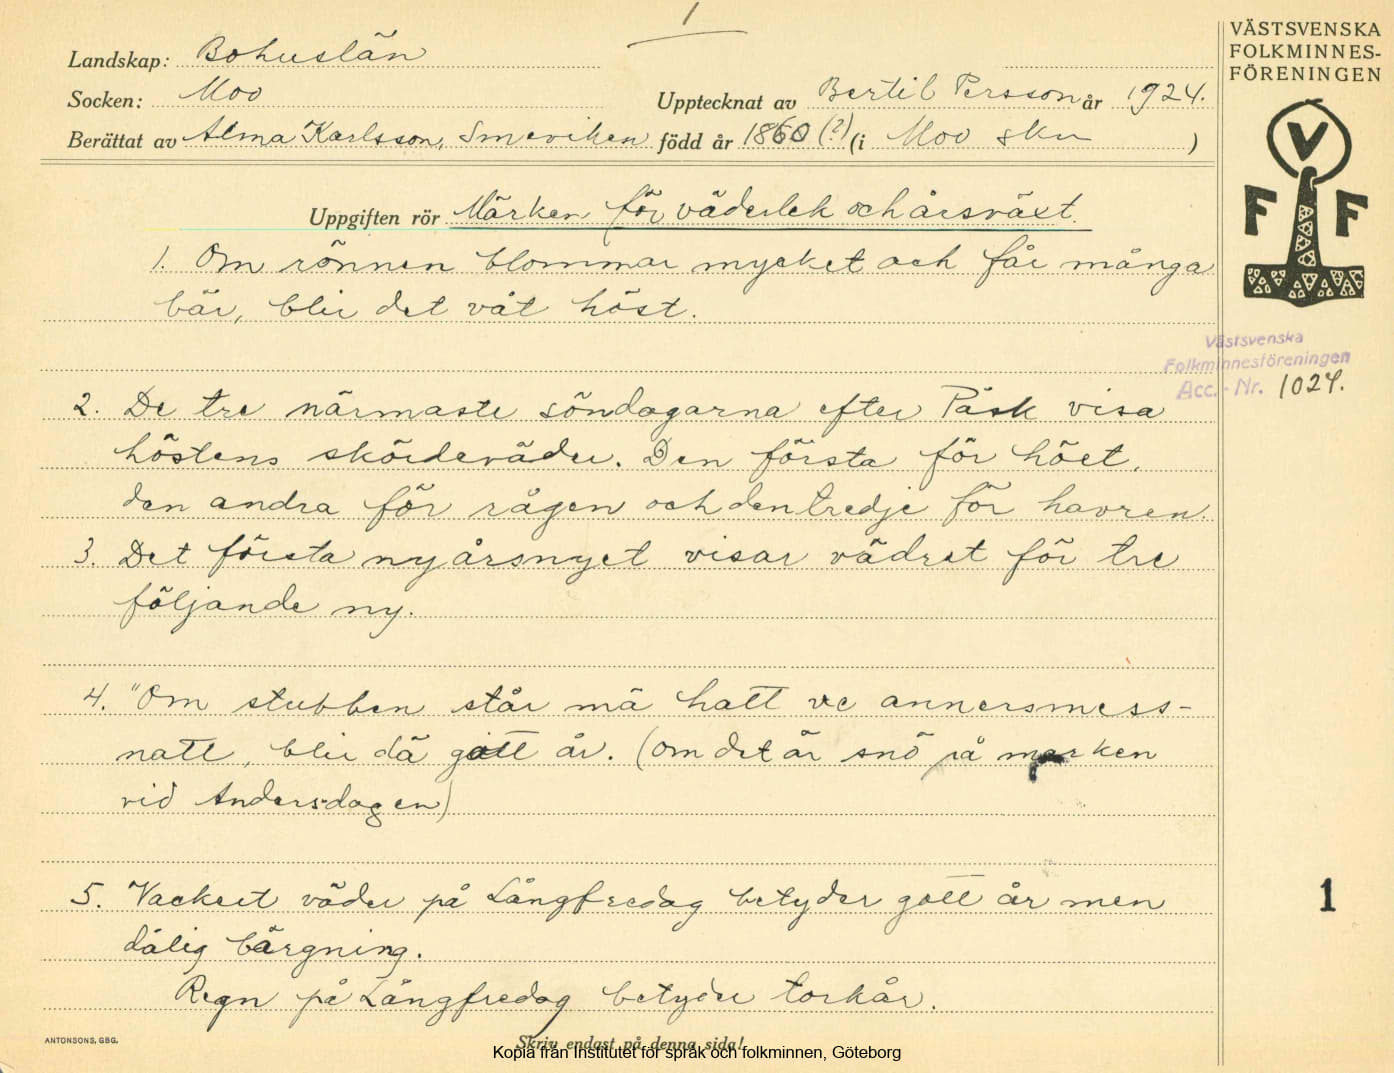 1
VÄSTSVENSKA
FOLKMINNES-
FÖRENINGEN
Landskap: Bohuslän
Socken: Moo
Upptecknat av Bertil Persson år 1924.
Berättat av Alma Karlsson, Smeviken född år 1860 (?) (i Moo skn )
V F F
Uppgiften rör Märken för väderlek och årsväxt.
1. Om rönnen blommar mycket och får många
bär, blir det våt höst.
Västsvenska
Folkminnesföreningen
Acc.-Nr. 1024.
2. De tre närmaste söndagarna efter Påsk visa
höstens skördeväder. Den första för höet,
den andra för rågen och den tredje för havren.
3. Det första nyårsnyet visar vädret för tre
följande ny.
4. "Om stubben står mä hatt ve annersmess-
natt, blir dä gått år. (om det är snö på marken
vid Andersdagen)
5. Vackert väder på Långfredag betyder gott år men
dålig bärgning.
1
Regn på Långfredag betyder torkår.
ANTONSONS, GBG.
Skriv endast på denna sida!
Kopia från Institutet för språk och folkminnen, Göteborg